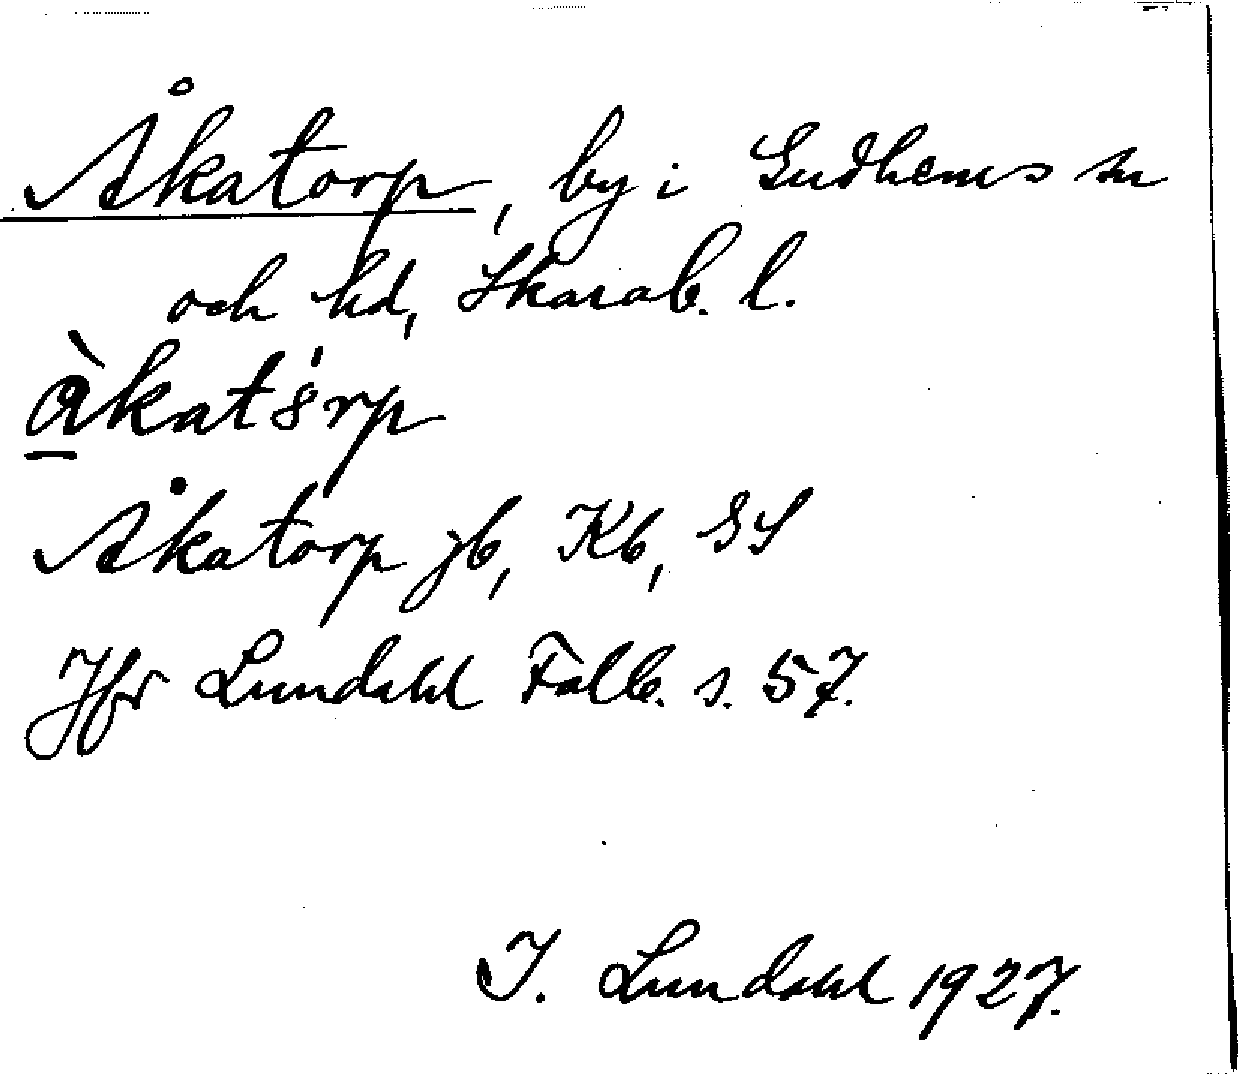 Åkatorp, by i Gudhems sn
och hd, Skarab. l.
àkatórp
Åkatorp jb, Kb, GS
Jfr Lundahl Falb. s. 57.
I. Lundahl 1927.